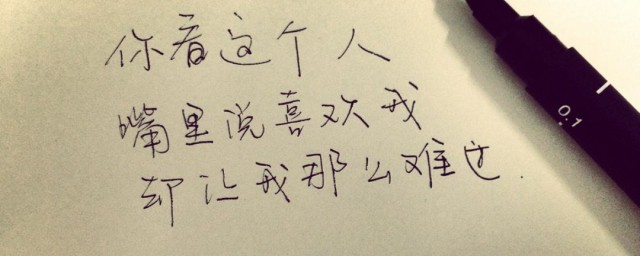 你看这个人
嘴里说喜欢我
却让我那么难过.
0.1